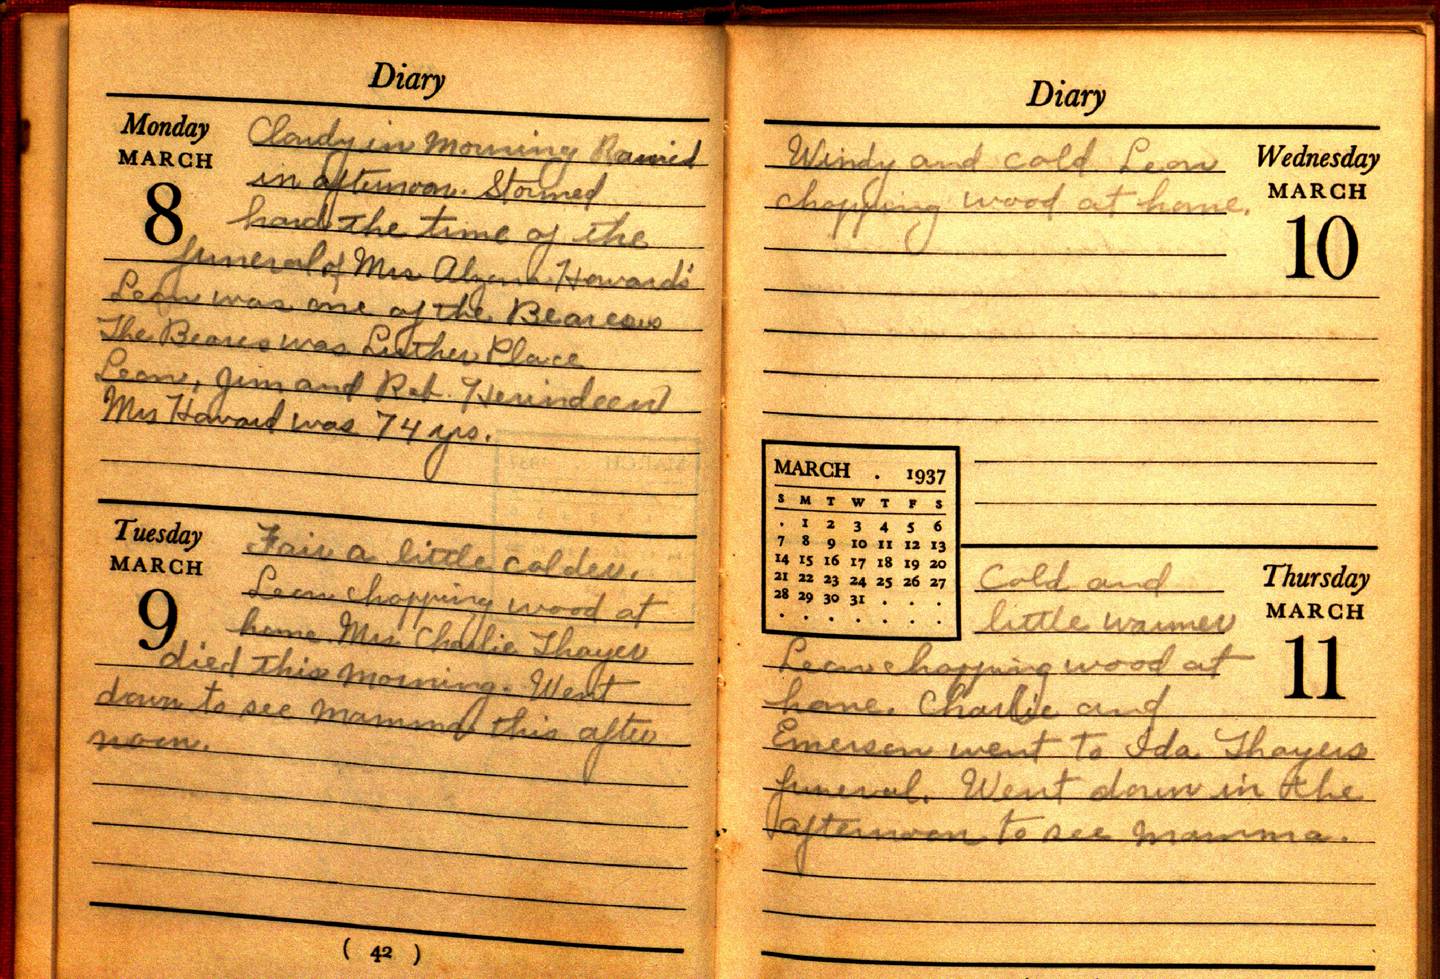 Diary
Monday
MARCH
8
Cloudy in Morning Rained
in afternoon. Stormed
hard the time of the
funeral of Mrs Alzena Howards'
Leon was one of the Beareres
The Beares was Luther Place
Leon, Jim and Reb. Herindeen
Mrs Howard was 74 yrs.
Tuesday
MARCH
9
Fair a little colder.
Leon chopping wood at
home Mrs Charlie Thayer
died this morning. Went
down to see mamma this after
noon.
( 42 )
Diary
Wednesday
MARCH
10
Windy and cold Leon
chopping wood at home.
MARCH . 1937
S M T W T F S
. 1 2 3 4 5 6
7 8 9 10 11 12 13
14 15 16 17 18 19 20
21 22 23 24 25 26 27
28 29 30 31 . . .
. . . . . . .
Thursday
MARCH
11
Cold and
little warmer
Leon chopping wood at
home. Charlie and
Emerson went to Ida Thayers
funeral. Went down in the
afternoon to see mamma.